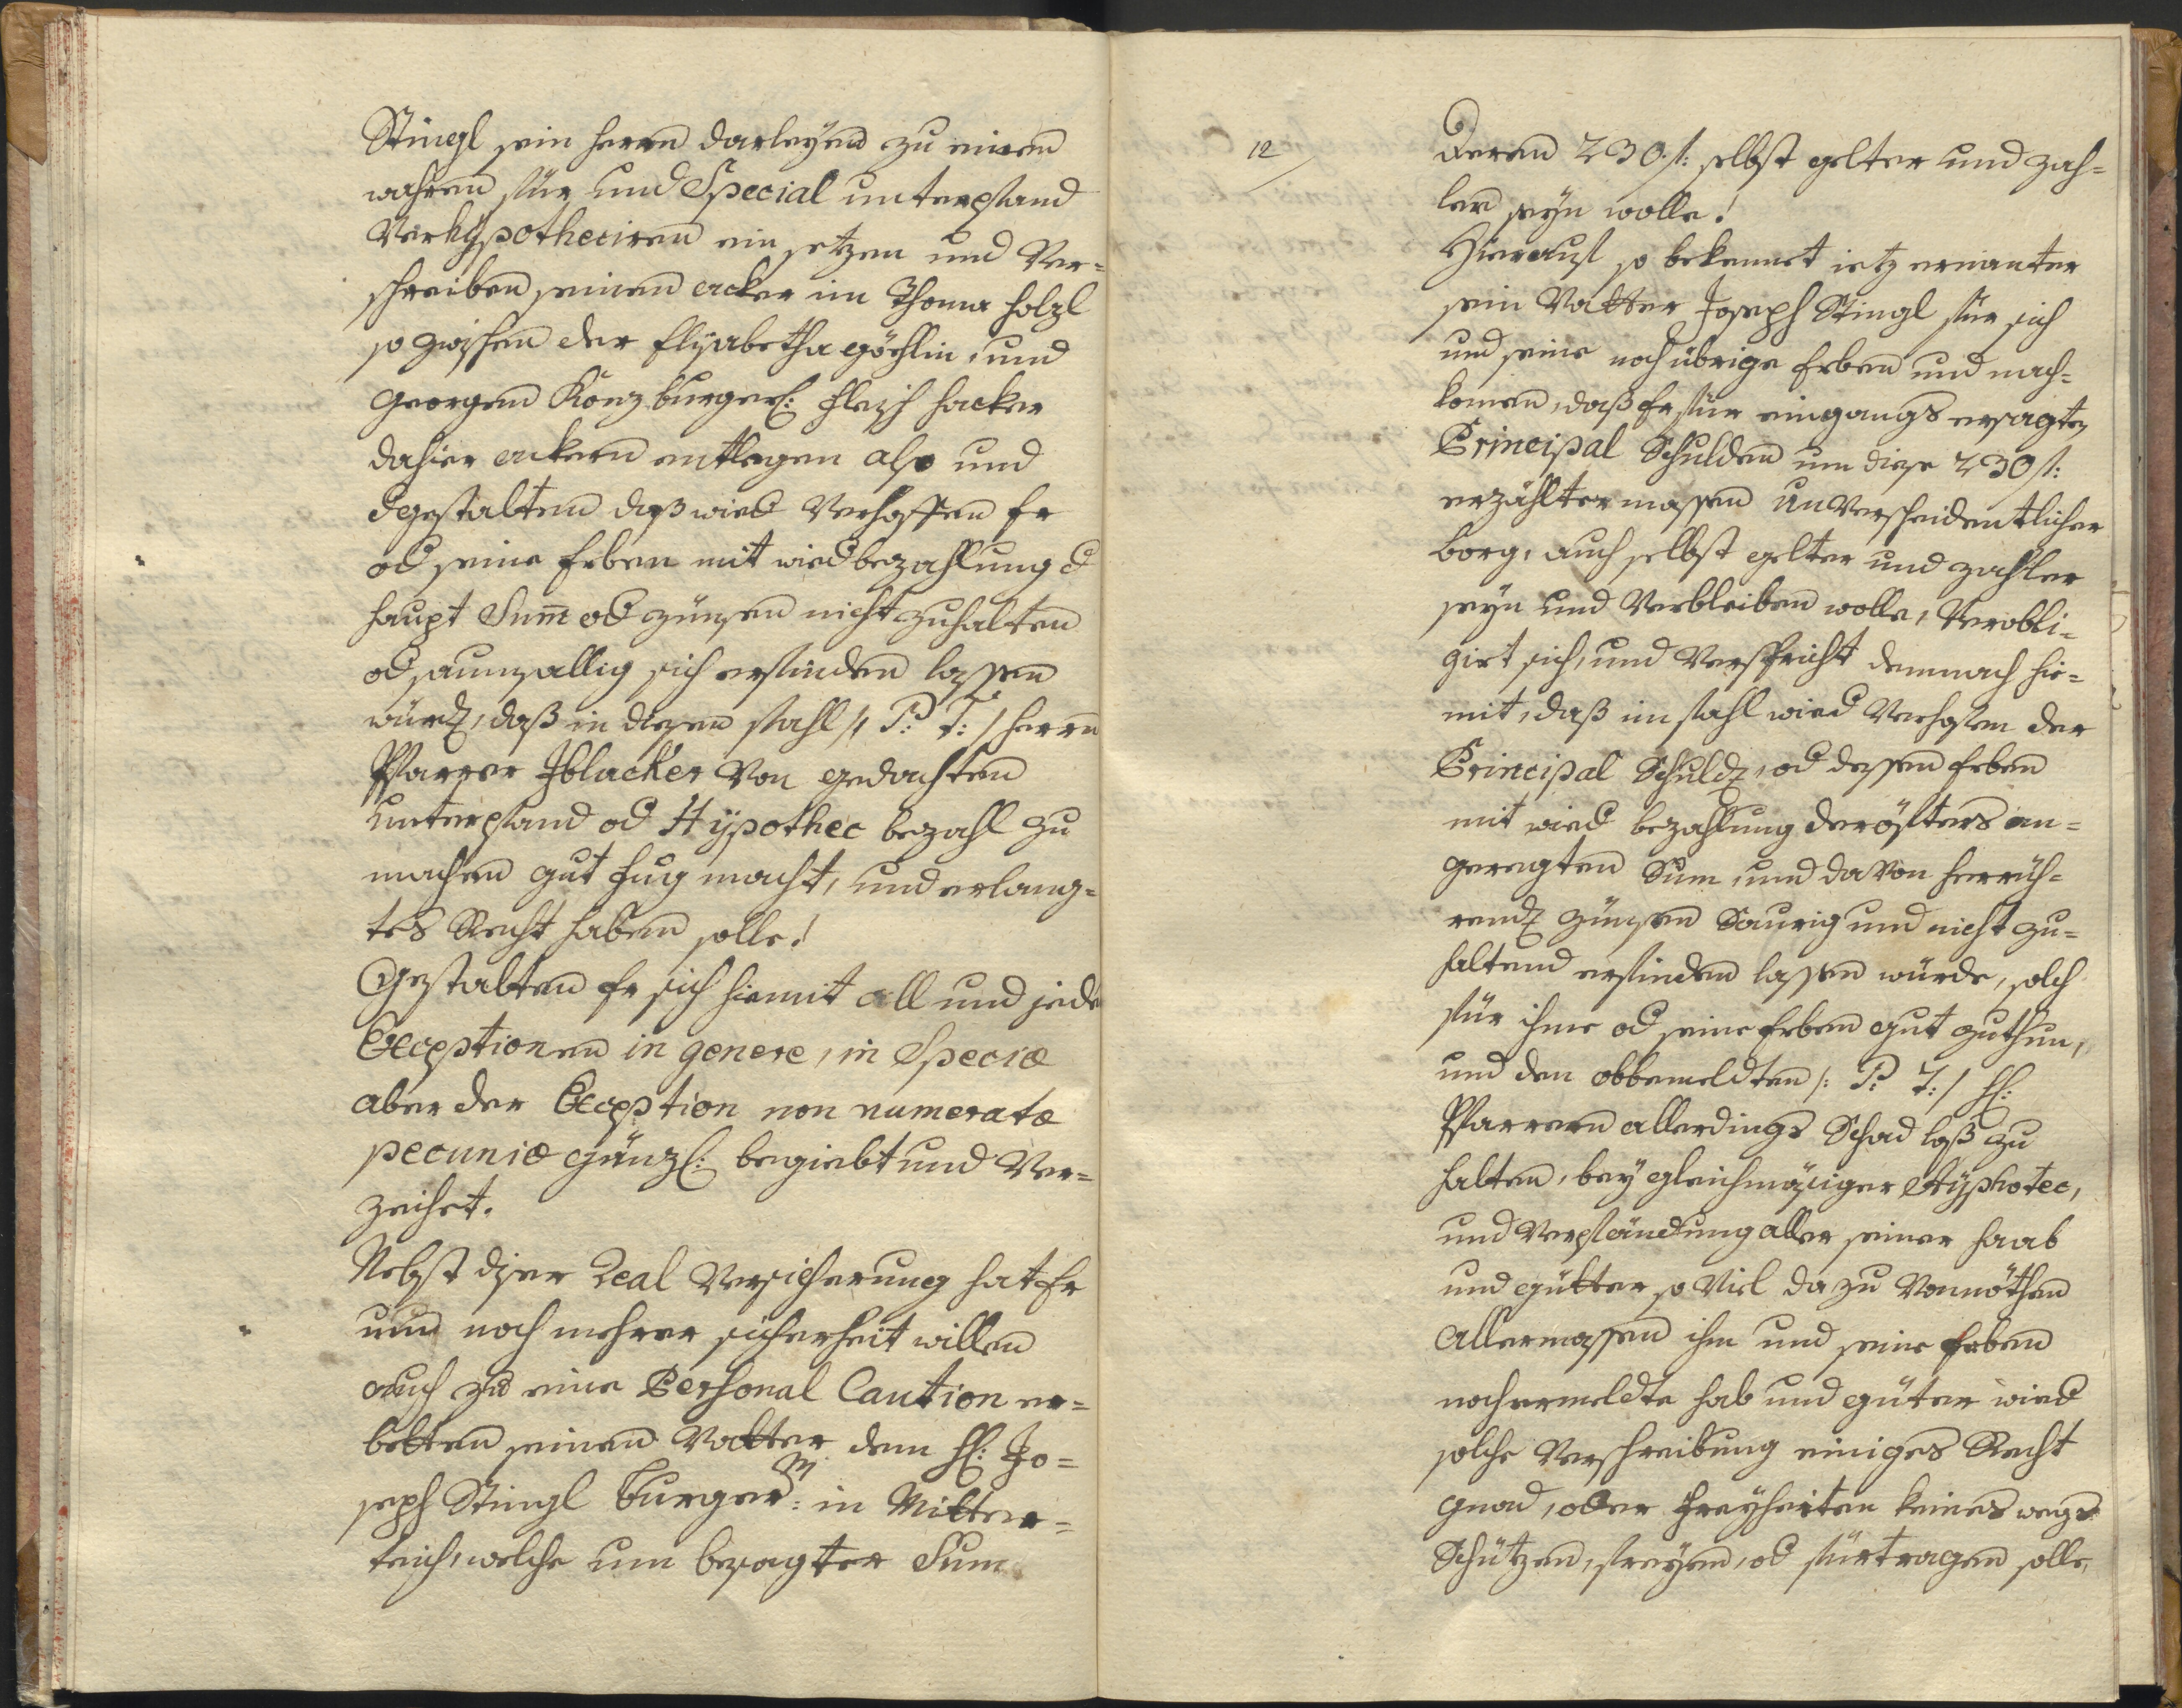 Stingl sein herrn darleyen zu einen
wahren für und Special unterpfand
Verhÿpotheciren ein setzen und Ver=
schreiben seinen acker im Thoma holzl
so zwischen der Elisabetha göhlin, und
Georgen Konzburgerl: Fleisch hacker
dahier ackern entlegen also und
dgestalten daß wied Verhoffen Er
od seine Erben mit wiedbezahlung d
haupt Sum̄ od zünsen nicht zuhalten
od saumsallig sich erfinden lassen
würd, daß in diesen fahl /: P: T: / herrn
Pfarrer Iblacker Von gedachten
unterpfand od Hÿpothec bezahl zu
machen gut fug macht, und erlang=
tes Recht haben solle!
Gestalten Er sich hiemit all und jede
Exceptionen in genere, in Speciæ
aber der Exception non numeratæ
pecuniæ gänzl: begiebt und Ver=
zeihet.
Nebst diser Real Versicherung hat Er
um noch mehrer sicherheit willen
auch zu eine Personal Caution er=
betten seinen Vatter dem H: Jo=
seph Stingl burger: in Mitter=
teich, welche um besagter Sum
12
Deren 230 f: selbst gelter und zah=
ler seyn wolle!
Hierauf so bekennet ietz ernanter
sein Vatter Joseph Stingl für sich
und seine noch übrige Erben und nach=
komen, daß Er für eingangs ersagten
Principal Schulden um diese 230 f:
erzähltermassen unVerscheidentlicher
borg, auch selbst gelter und zahler
seyn und Verbleiben wolle, Verobli=
girt sich, und Verspricht demnach hie=
mit, daß im fahl wied Verhoffen der
Principal Schuld, od dessen Erben
mit wied bezahlung der öfters an=
geregten Sum, und davon herrüh=
rend zünsen Saurig und nicht zu=
haltend erfinden lassen würde, solch
für ihme od seine Erben gut zuthun,
und den obbemeldten /: P: T: / H:
Pfarrern allerdings Schad loß zu
halten, bey gleichmäsiger Hÿphotec,
und Verpfändung aller seiner Haab
und gütter so Viel dazu Vonnöthen
Allermassen ihm und seine Erben
noch ermeldte hab und güter wied
solche Verschreibung einiges Recht
gnad, oder Freyheiten keines wegs
Schützen, freyen, od fürtragen solle,